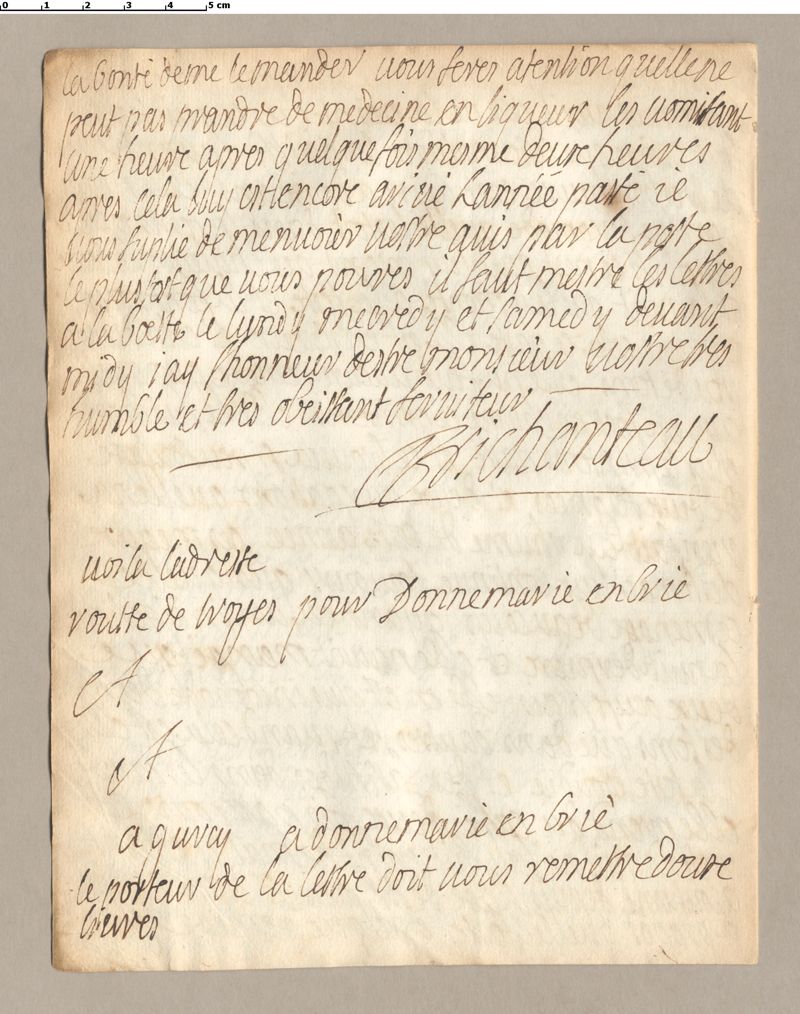 0 1 2 3 4 5 cm
la bonté de me le mander vous feres atention quelle ne
peut pas prandre de medecine en liqueur les vomisant
une heure apres quelque fois mesme deux heures
apres cela luy est encore arivé lannéé passé ie
vous suplie de menvoiér vostre avis par la poste
le plustost que vous poures il faut mestre les lettres
a la boeste le lundy mecredy et samedy devant
midy iay lhonneur destre monsieur vostre tres
humble et tres obeissant serviteur
Brichanteau
voila ladresse
routte de troyes pour Donnemarie en brie
A
A
a gurcy a donnemarie en brie
le porteur de la lettre doit vous remettre douze
livres